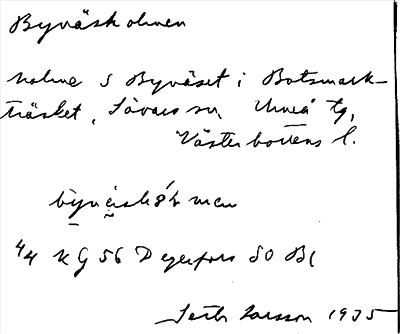 Byväskholmen
holme S Byväset i Botsmark-
träsket, Sävars sn. Umeå tg,
Västerbottens l.
4/4 kg 56 Degerfors SO Bl
Seth Larsson 1935